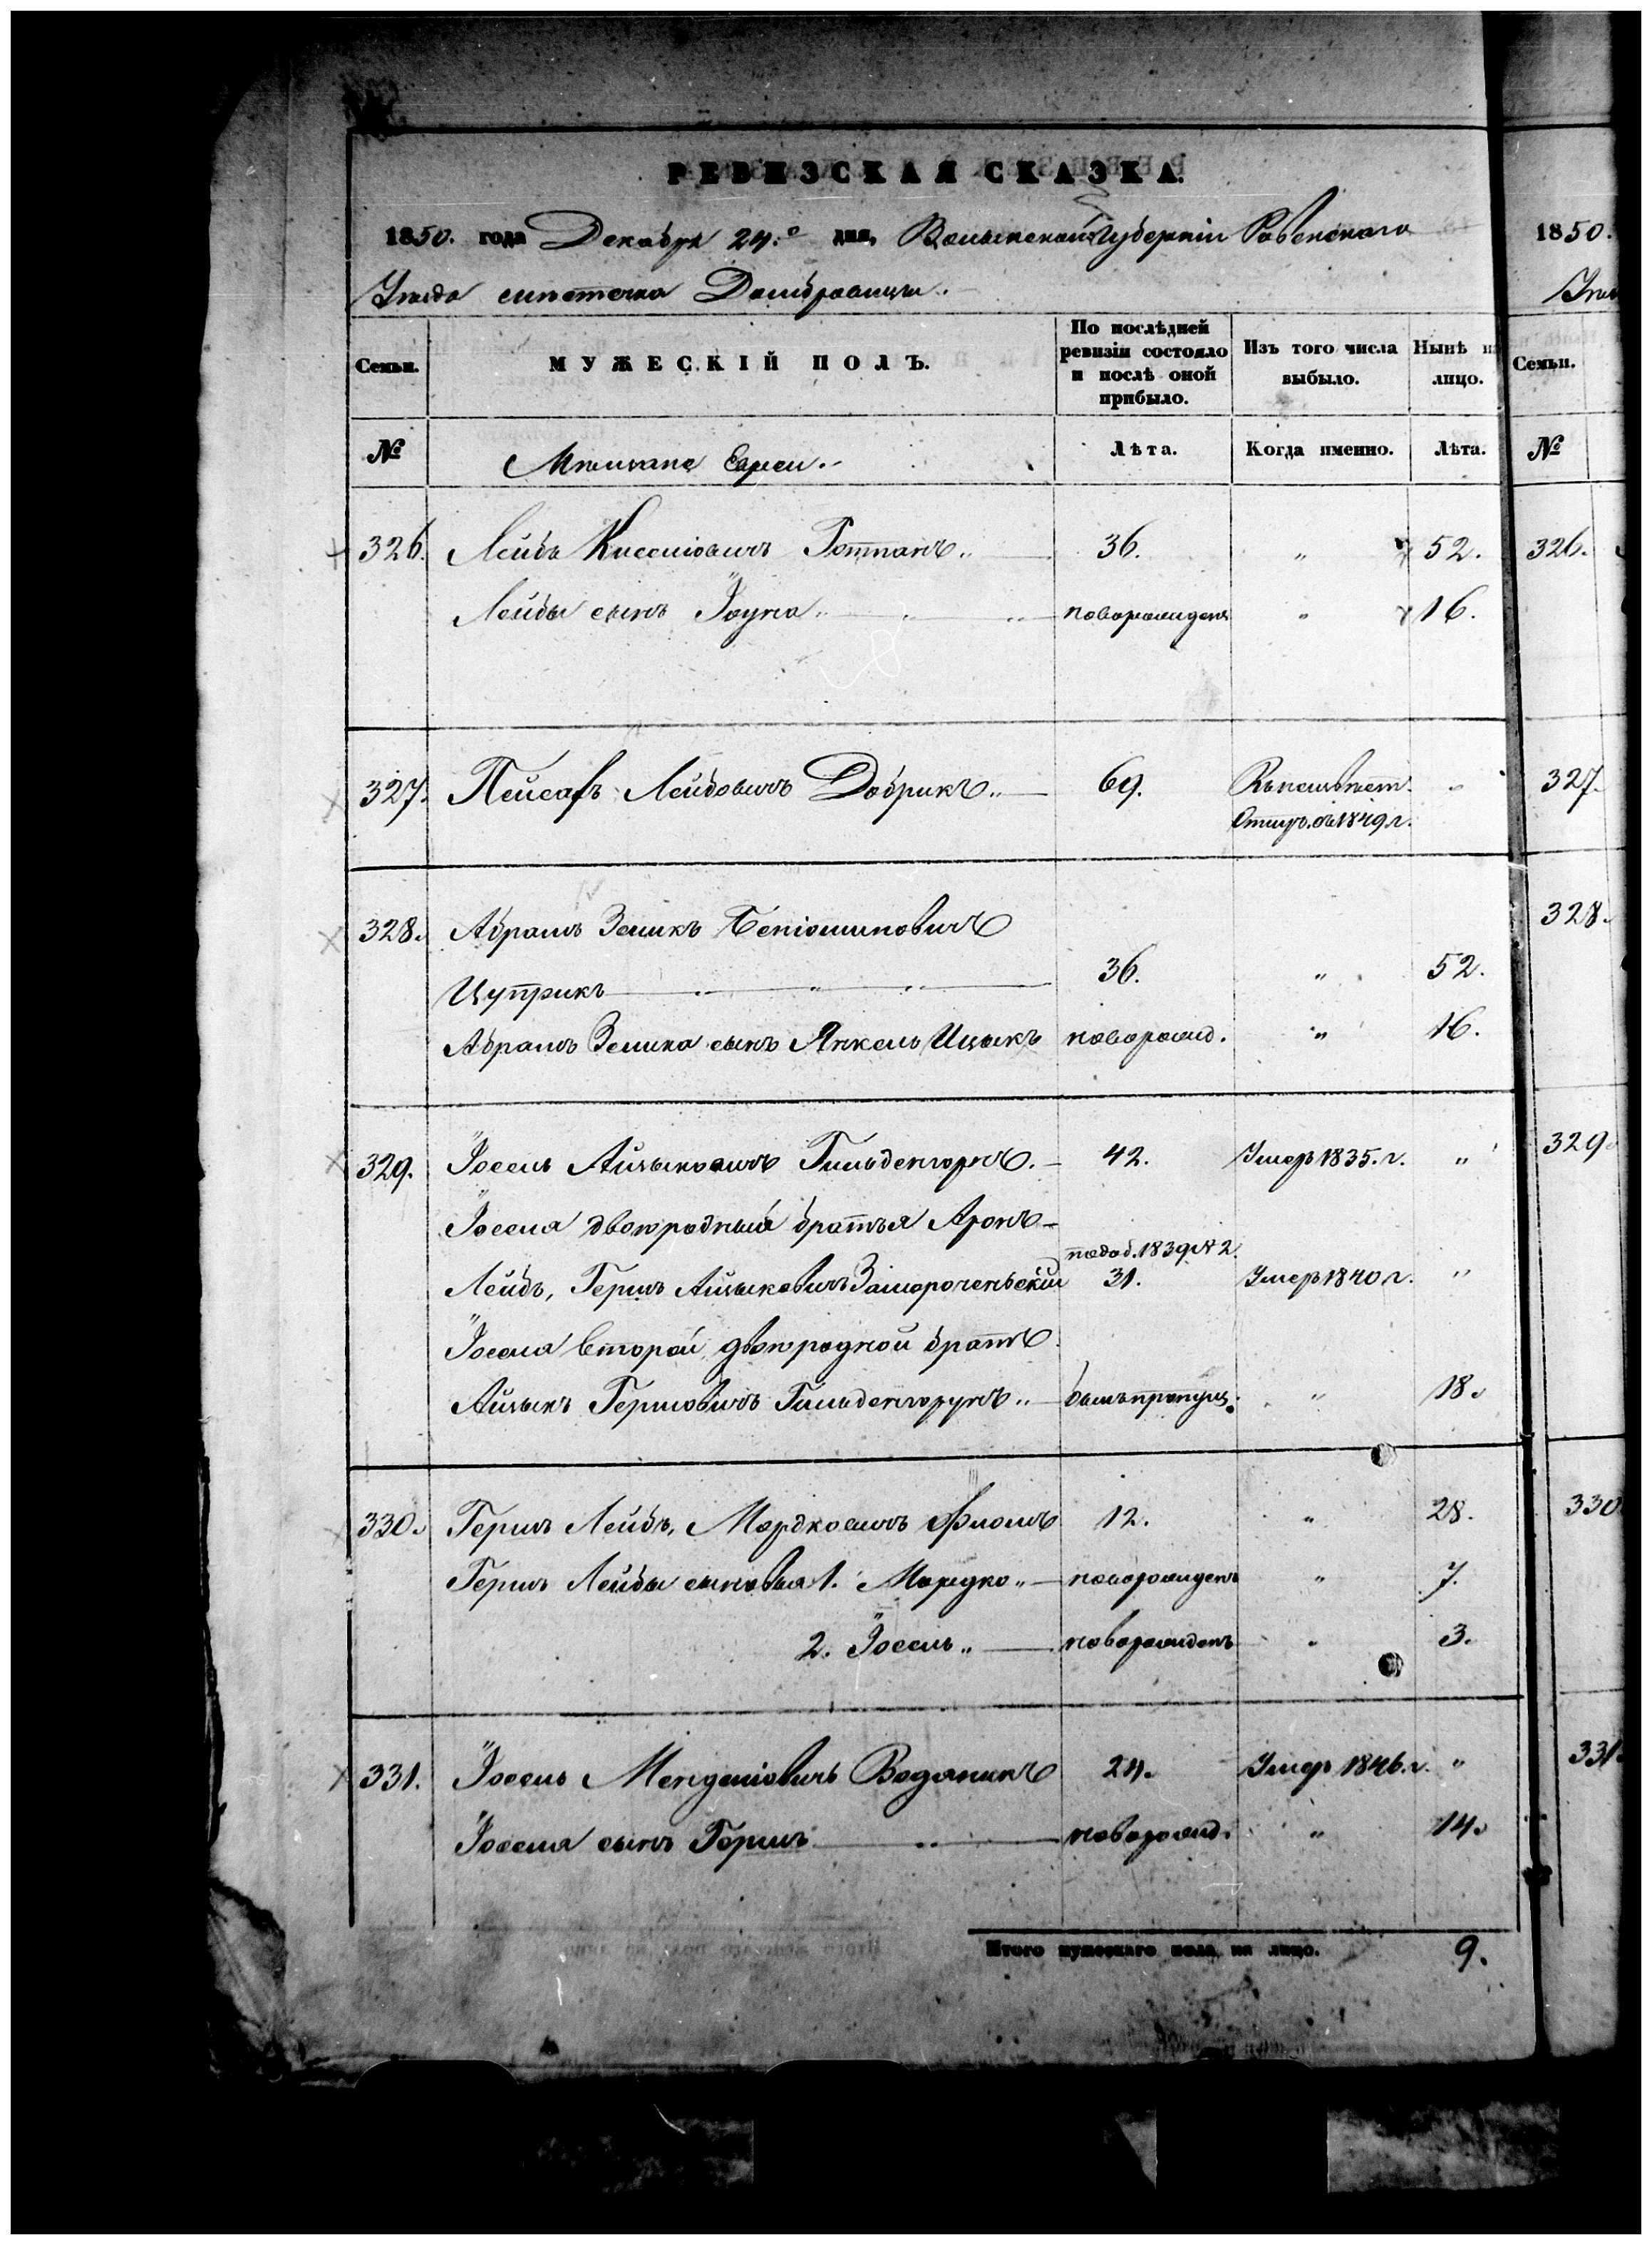 РЕВИЗСКАЯ СКАЗКА.
1850. года Декабря 24.го дня, Волынской Губерніи Ровенскаго
Уѣзда мѣстечка Домбровицы.
Семьи.
МУЖЕСКІЙ ПОЛЪ.
По послѣдней ревизіи состояло и послѣ оной прибыло.
Изъ того числа выбыло.
Нынѣ на лицо.
№
Мѣщане Евреи.
Лѣта.
Когда именно.
Лѣта.
326. Лейба Киселіовичъ Готманъ 36. " 52.
Лейбы сынъ Іоуна новорожденъ " 16.
327. Пейсахъ Лейбовичъ Добрикъ 69. 1849 г. "
328. Абрамъ Зеликъ Беніоминовичъ
Цуприкъ 36. " 52.
Абрамъ Зелика сынъ Янкель Ицыкъ новорожд. " 16.
329. Іосель Айзыковичъ Гильденгорнъ. 42. Умеръ 1835. г. "
Іоселя двоюродныя братья Аронъ
Лейбъ, Гершъ Айзыковичъ 1839 № 2. 31. Умеръ 1840 г. "
Іоселя второй двоюродной братъ
Айзыкъ Гершовичъ Гильденгорунъ былъ пропущ. " 18.
330. Гершъ Лейбъ, Мордковичъ Фломъ 12. " 28.
Гершъ Лейбы сыновья 1. Мордко новорожденъ " 7.
2. Іосель новорожденъ " 3.
331. Іосель Менделіовичъ Водяникъ 24. Умеръ 1846. г. "
Іоселя сынъ Гершъ новорожд. " 14.
Итого мужескаго пола на лицо. 9.
1850.
Семьи.
№
326.
327.
328.
329.
330
331.